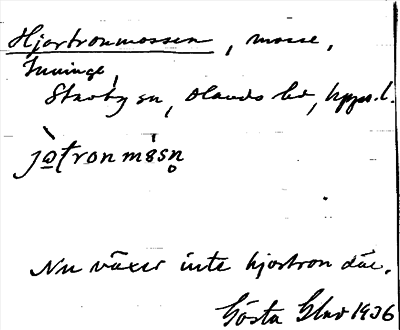 Hjortronmossen, mosse,
Inninge,
Stavby sn, Olands hd, Upps. l.
jo̱tronmåsn̥
Nu växer inte hjortron där.
Gösta Glad 1936